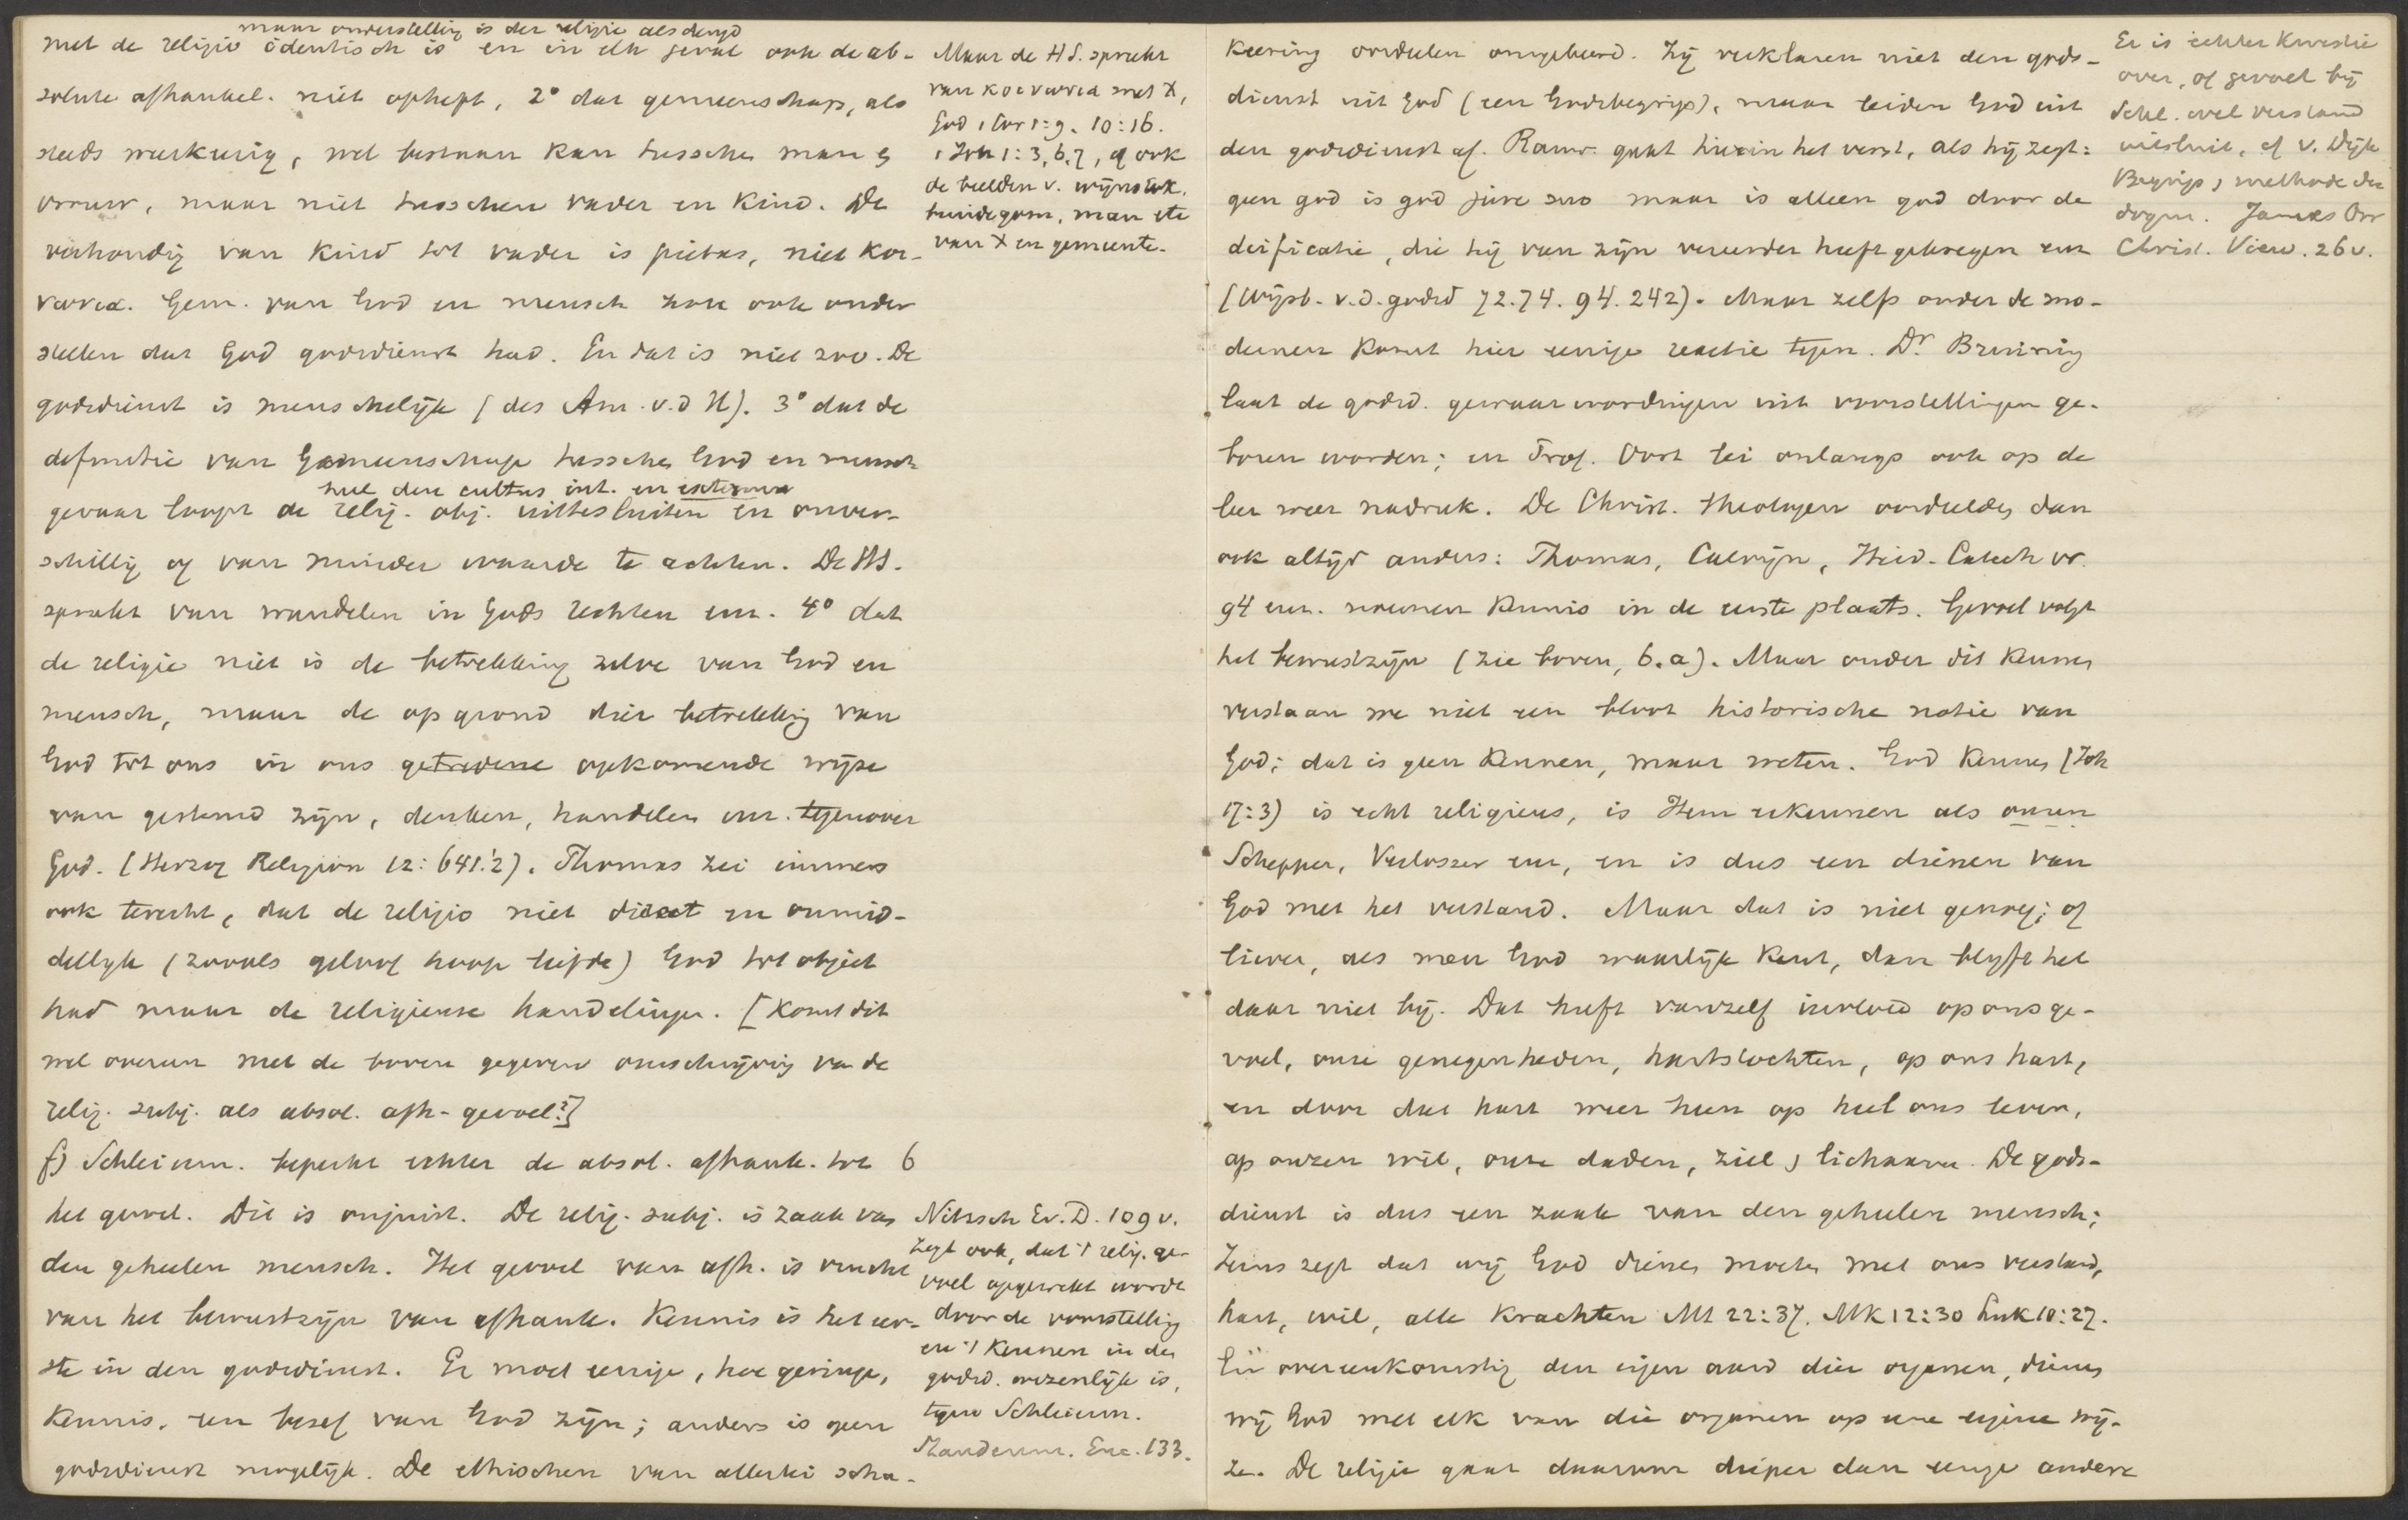 maar onderstelling is der religie als deugd
met de religio identisch is en in elk geval ook de ab-
solute afhankel. niet opheft, 2° dat gemeenschap, als
steeds wederkeerig, wel bestaan kan tusschen man &
vrouw, maar niet tusschen vader en kind. De
verhoudig van kind tot vader is pietas, niet κοι-
νωνια. Gem. van God en mensch zou ook onder
stellen dat God godsdienst had. En dat is niet zoo. De
godsdienst is menschelijk (des Am. v.d H). 3° dat de
definitie van Gemeenschap tusschen God en mensch
heel den cultus int. en externus
gevaar loopt de relig. obj. uittesluiten en onver-
schillig of van minder waarde te achten. De HS.
spreekt van wandelen in Gods rechten enz. 4° dat
de religie niet is de betrekking zelve van God en
mensch, maar de op grond dier betrekking van
God tot ons in ons getredene opkomende wijze
van gestemd zijn, denken, handelen enz. tegenover
God. (Herzog Religion 12:641.2). Thomas zei immers
ook terecht, dat de religio niet direct en onmid-
dellijk (zooals geloof hoop liefde) God tot object
had maar de religieuse handelingen. [Komt dit
wel overeen met de boven gegeven omschrijving van de
relig. subj. als absol. afh-gevoel?]
f) Schleierm. beperkt echter de absol. afhank. tot 6
het gevoel. Dit is onjuist. De relig. subj. is zaak van
den geheelen mensch. Het gevoel van afh. is vrucht
van het bewustzijn van afhank. Kennis is het eer-
ste in den godsdienst. Er moet eenige, hoe geringe,
kennis, een besef van God zijn; anders is geen
godsdienst mogelijk. De ethischen van allerlei scha-
Maar de HS. spreekt
van κοινωνια met X,
God 1 Cor 1:9. 10:16.
1 Joh 1:3, 6, 7, of ook
de beelden v. wijnstok,
bruidegom, man etc
van X en gemeente.
Nitzsch Ev. D. 109 v.
zegt ook, dat 't relig. ge-
voel opgewekt wordt
door de voorstelling
en 't kennen in den
godsd. wezenlijk is,
tegen Schleierm.
Enc. 133.
keering oordeelen omgekeerd. Zij verklaren niet den gods-
dienst uit God (een Godsbegrip), maar leiden God uit
den godsdienst af. Rauw. gaat hierin het verst, als hij zegt:
geen god is god jure suo maar is alleen god door de
deificatie, die hij van zijn vereerder heeft gekregen enz
(Wijsb. v.d. godsd 72.74.94.242). Maar zelfs onder de mo-
dernen komt hier eenige reactie tegen. Dr Bruining
laat de godsd. gewaarwordingen uit voorstellingen ge-
boren worden; en Prof. Oort lei onlangs ook op de
leer weer nadruk. De Christ. theologen oordeelden dan
ook altijd anders: Thomas, Calvijn, Heid. Catech vr.
94 enz. noemen kennis in de eerste plaats. Gevoel volgt
het bewustzijn (zie boven, b.a). Maar onder dit kennen
verstaan we niet een bloot historische notie van
God; dat is geen kennen, maar weten. God kennen (Joh
17:3) is echt religieus, is Hem erkennen als onzen
Schepper, Verlosser enz, en is dus een dienen van
God met het verstand. Maar dat is niet genoeg; of
liever, als men God waarlijk kent, dan blijft het
daar niet bij. Dat heeft vanzelf invloed op ons ge-
voel, onze genegenheden, hartstochten, op ons hart,
en door dat hart weer heen op heel ons leven,
op onzen wil, onze daden, ziel & lichaam. De gods-
dienst is dus een zaak van den geheelen mensch;
Jezus zegt dat wij God dienen moeten met ons verstand,
hart, wil, alle krachten Mt 22:37. Mk 12:30 Luk 10:27.
En overeenkomstig den eigen aard dier organen, dienen
wij God met elk van die organen op eene eigene wij-
ze. De religie gaat daarom dieper dan eenige andere
Er is echter kwestie
over, of gevoel bij
Schl. wel verstand
uitsluit, cf v. Dijk
Begrip & methode der
dogm. James Orr
Christ. View. 26 v.